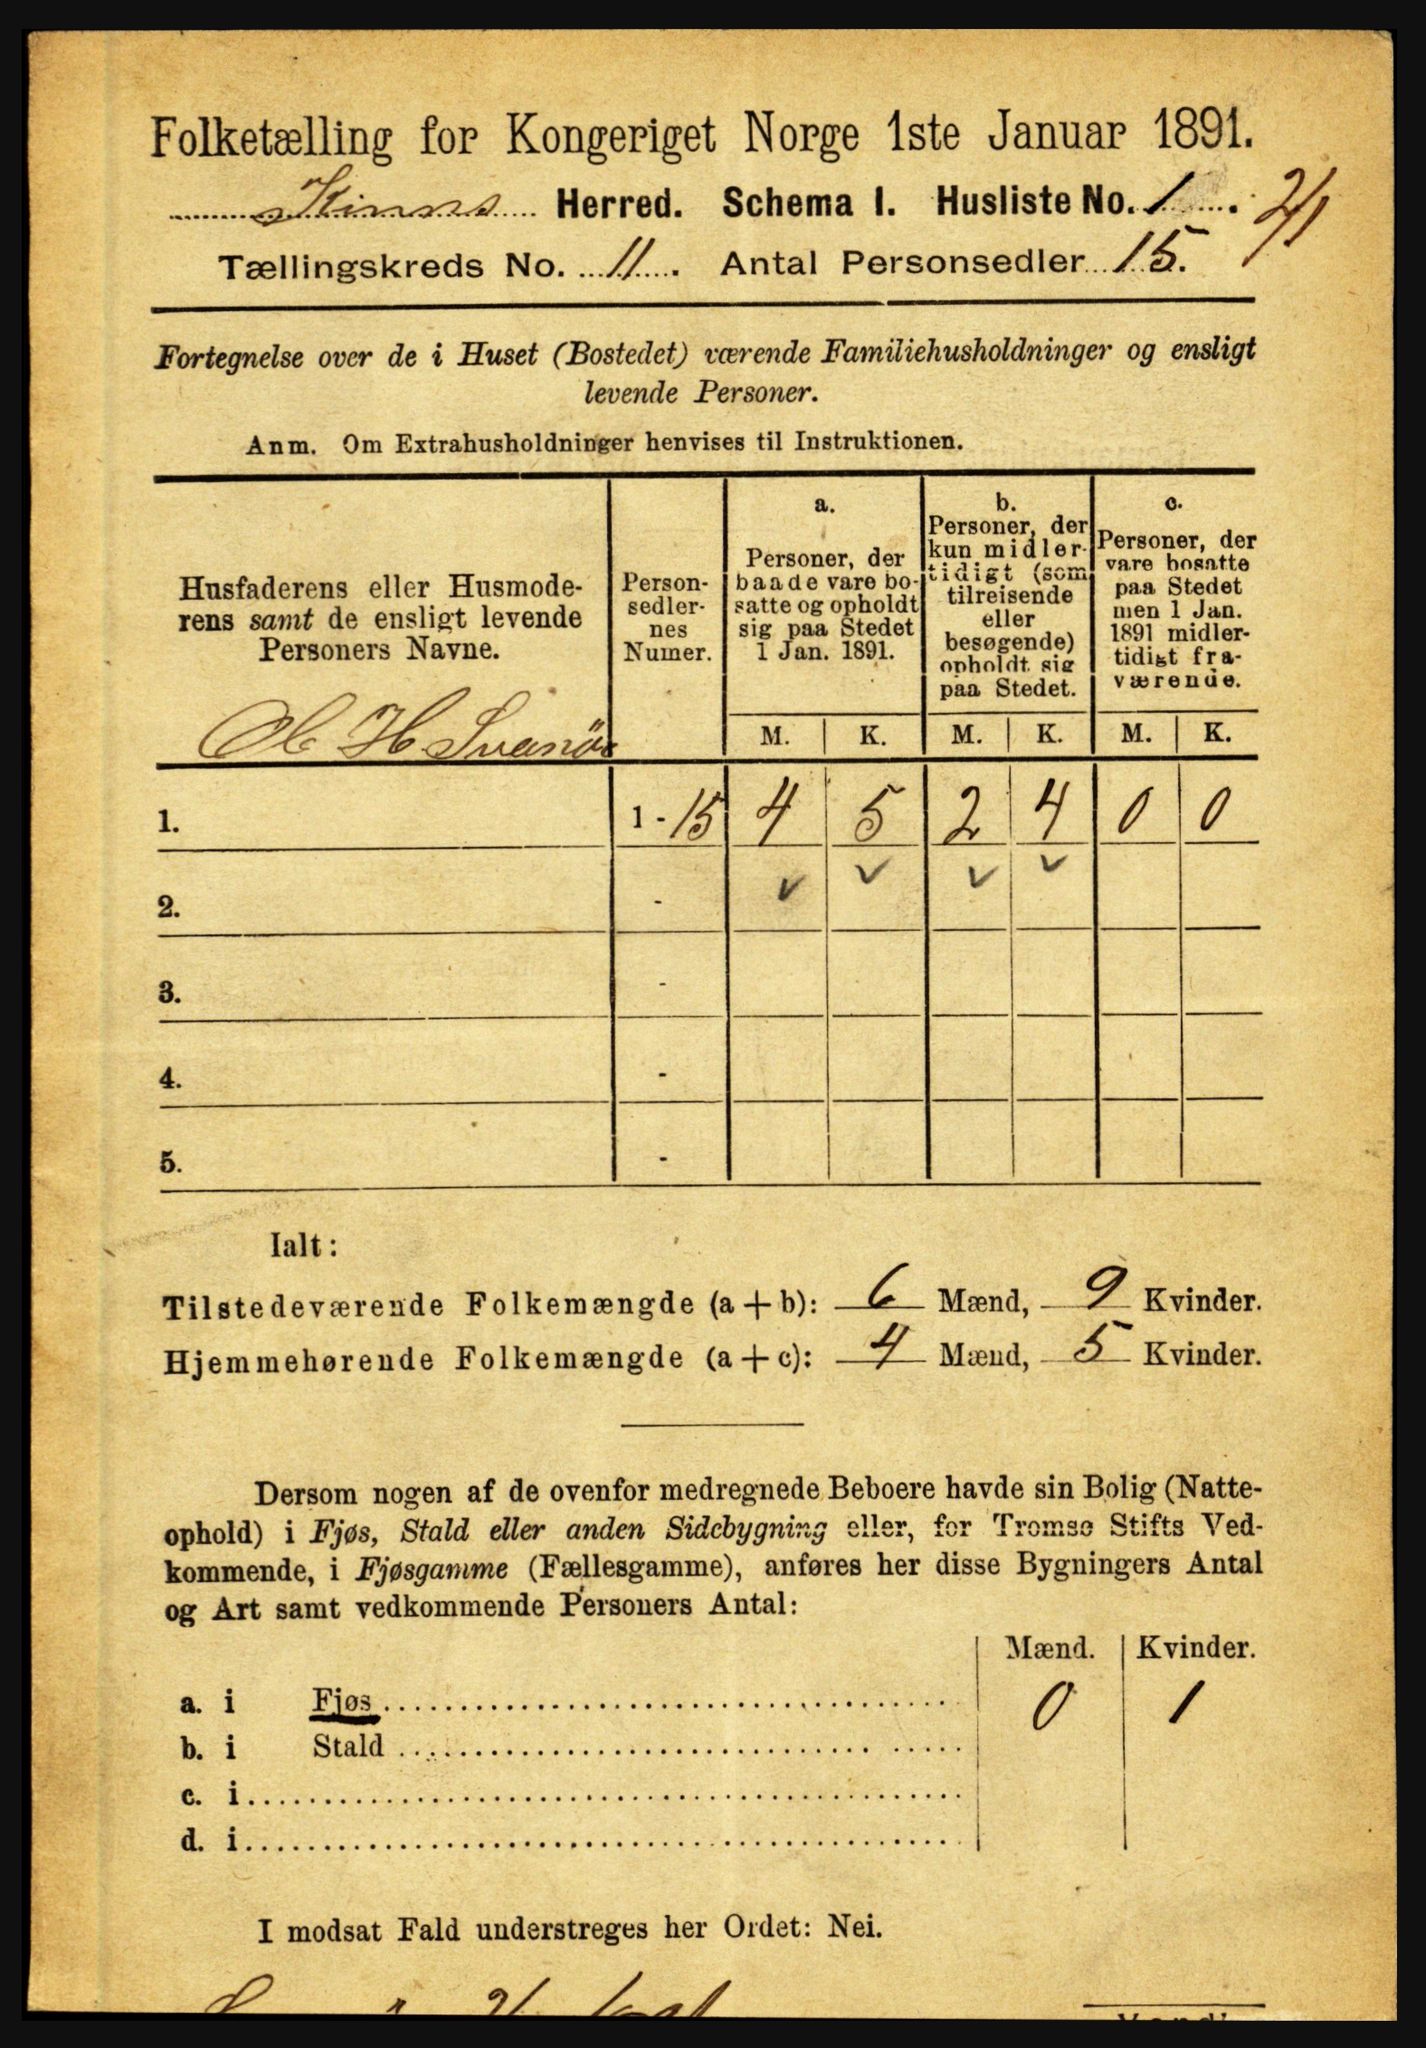 Folketælling for Kongeriget Norge 1ste Januar 1891.
Kinns Herred. Schema I. Husliste No. 1.
Tællingskreds No. 11. Antal Personsedler 15.
Fortegnelse over de i Huset (Bostedet) værende Familiehusholdninger og ensligt
levende Personer.
Anm. Om Extrahusholdninger henvises til Instruktionen.
Husfaderens eller Husmode-
rens samt de ensligt levende
Personers Navne.
H Svanöe
Person-
sedler-
nes
Numer.
a.
Personer, der
baade vare bo-
satte og opholdt
sig paa Stedet
1 Jan. 1891.
b.
Personer, der
kun midler-
tidigt (som
tilreisende
eller
besøgende)
opholdt sig
paa Stedet.
c.
Personer, der
vare bosatte
paa Stedet
men 1 Jan.
1891 midler-
tidigt fra-
værende.
M. K. M. K. M. K.
1. 1 - 15 4 5 2 4 0 0
2. -
3. -
4. -
5. -
Ialt:
Tilstedeværende Folkemængde (a+b): 6 Mænd, 9 Kvinder.
Hjemmehørende Folkemængde (a+c): 4 Mænd, 5 Kvinder.
Dersom nogen af de ovenfor medregnede Beboere havde sin Bolig (Natte-
ophold) i Fjøs, Stald eller anden Sidebygning eller, for Tromsø Stifts Ved-
kommende, i Fjøsgamme (Fællesgamme), anføres her disse Bygningers Antal
og Art samt vedkommende Personers Antal:
Mænd. Kvinder.
a. i Fjøs 0 1
b. i Stald
c. i
d. i
I modsat Fald understreges her Ordet: Nei.